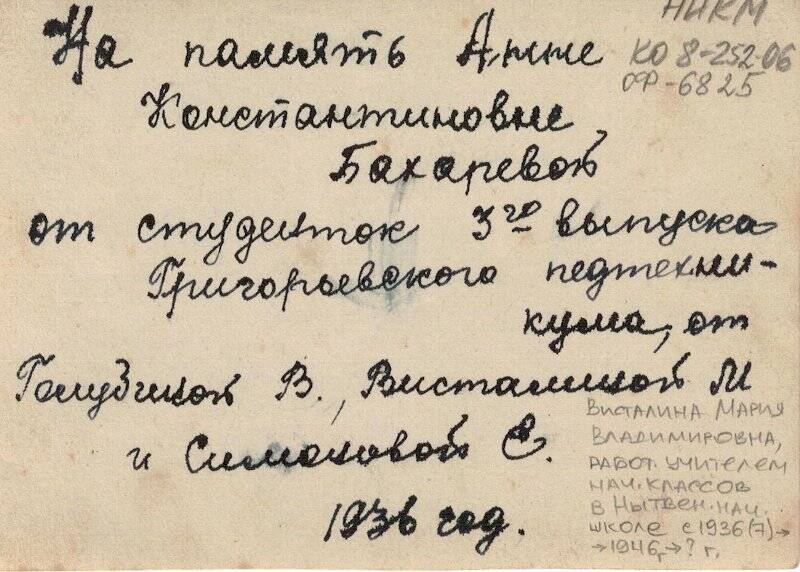 На память Анне
НИКМ
КО 8-252-06
ОФ-6825
Константиновне
Бахаревой
от студенток 3го выпуска
Григорьевского педтехни-
кума, от
В., Висталиной М
и Симоновой Е.
1936 год.
Висталина Мария
Владимировна,
работ. учителем
нач. классов
в Нытвен. нач.
школе с 1936(7)→
→1946г→? г.